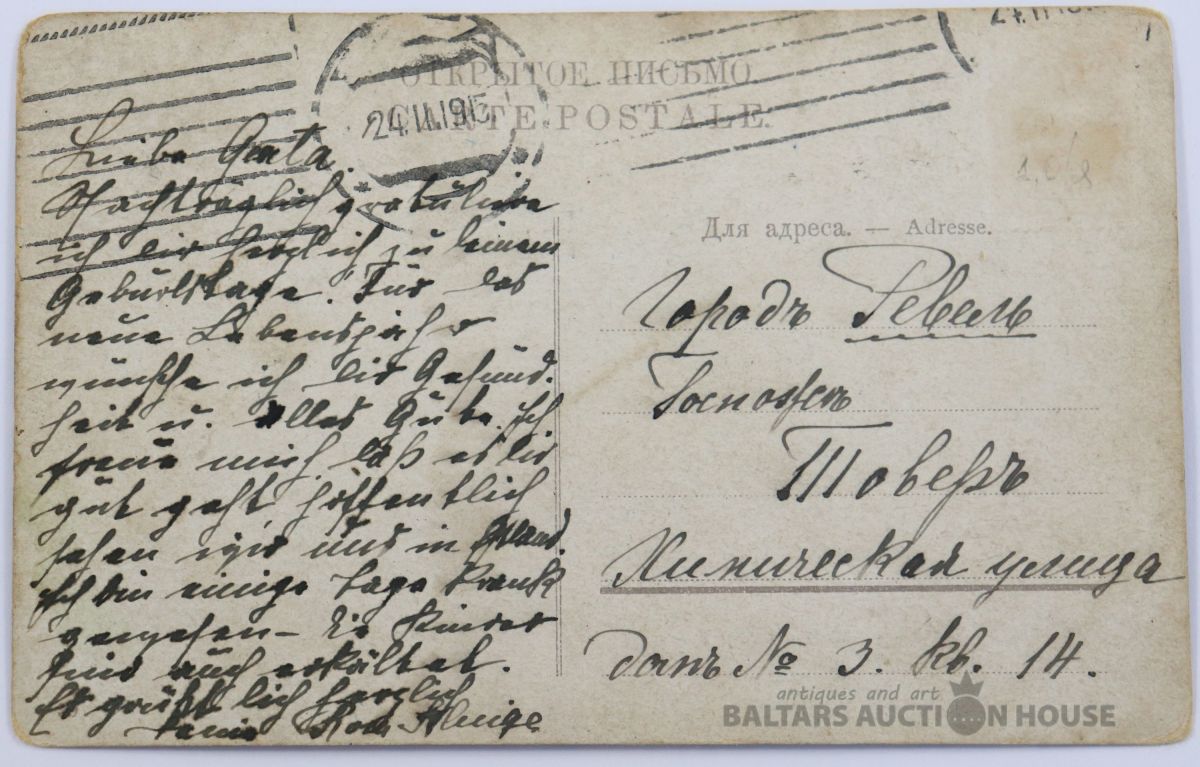 ОТКРЫТОЕ ПИСЬМО.
CARTE POSTALE.
24.11.191
Liebe Gerta
Nachträglich gratuliere
ich dir herzlich zu deinem
Geburtstage. Für das
neue Lebensjahr
wünsche ich dir Gesund-
heit u. alles Gute. Ich
freue mich, daß es dir
gut geht hoffentlich
sehen wir uns in
Ich bin einige Tage krank
gewesen – die Kinder
sind auch erkältet.
Es grüßt dich herzlich
deine
Для адреса. — Adresse.
Городъ Ревель
Госпожѣ
Товеръ
Химическая улица
домъ № 3. кв. 14.
antiques and art
BALTARS AUCTION HOUSE